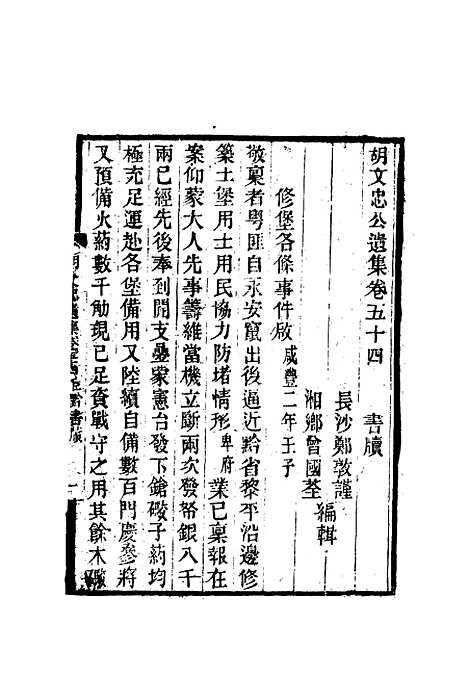 胡文忠公遺集卷五十四　書牘
長沙鄭敦謹
湘鄉曾國荃
編輯
修堡各條事件啟 咸豐二年壬子
敬稟者粵匪自永安竄出後逼近黔省黎平沿邊修
築土堡用士用民協力防堵情形卑府業已稟報在
案仰蒙大人先事籌維當機立斷兩次發帑銀八千
兩已經先後奉到開支疊蒙憲台發下鎗礮子葯均
極充足運赴各堡備用又陸續自備數百門慶參將
又預備火葯數千觔現已足資戰守之用其餘木礮